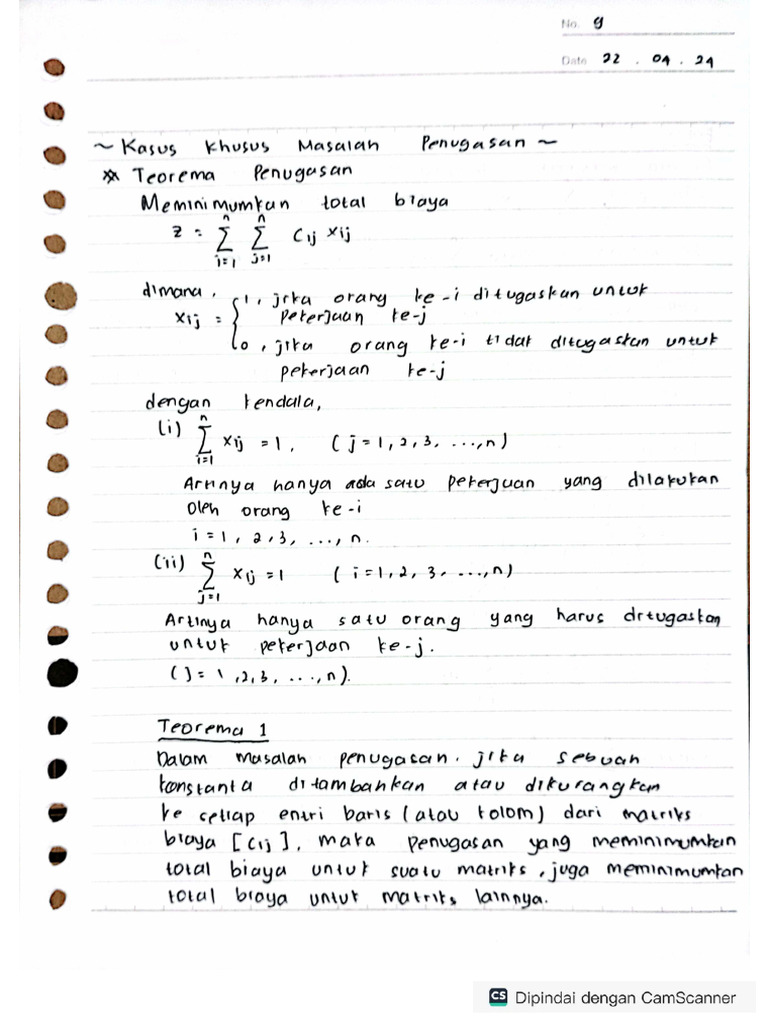 No. 9
Date 22 . 04 . 24
~ Kasus Khusus Masalah Penugasan ~
※ Teorema Penugasan
Meminimumkan total biaya
z = n∑i=1 n∑j=1 Cij xij
dimana,
xij = { 1, jika orang ke-i ditugaskan untuk
pekerjaan ke-j
0, jika orang ke-i tidak ditugaskan untuk
pekerjaan ke-j
dengan kendala,
(i) n∑i=1 xij = 1, (j = 1, 2, 3, ..., n)
Artinya hanya ada satu pekerjaan yang dilakukan
oleh orang ke-i
i = 1, 2, 3, ..., n.
(ii) n∑j=1 xij = 1 (i = 1, 2, 3, ..., n)
Artinya hanya satu orang yang harus ditugaskan
untuk pekerjaan ke-j.
(j = 1, 2, 3, ..., n).
Teorema 1
Dalam masalah penugasan, jika sebuah
konstanta ditambahkan atau dikurangkan
ke setiap entri baris (atau kolom) dari matriks
biaya [Cij], maka penugasan yang meminimumkan
total biaya untuk suatu matriks, juga meminimumkan
total biaya untuk matriks lainnya.
CS Dipindai dengan CamScanner